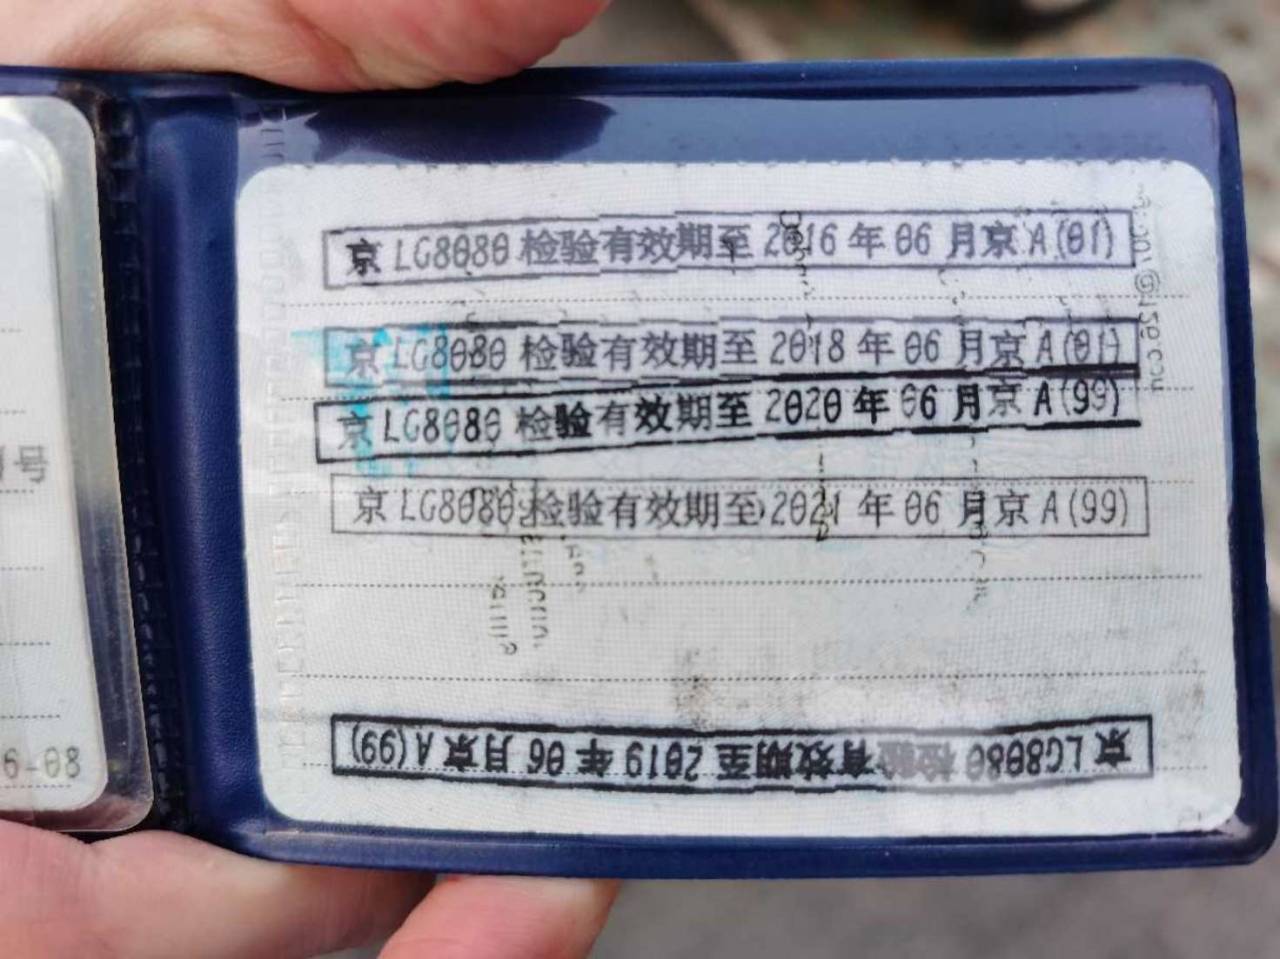 京 LG8080 检验有效期至 2016 年 06 月京 A(01)
京 LG8080 检验有效期至 2018 年 06 月京 A(01)
京 LG8080 检验有效期至 2020 年 06 月京 A(99)
京 LG8080 检验有效期至 2021 年 06 月京 A(99)
京 LG8080 检验有效期至 2019 年 06 月京 A(99)
号
6-08